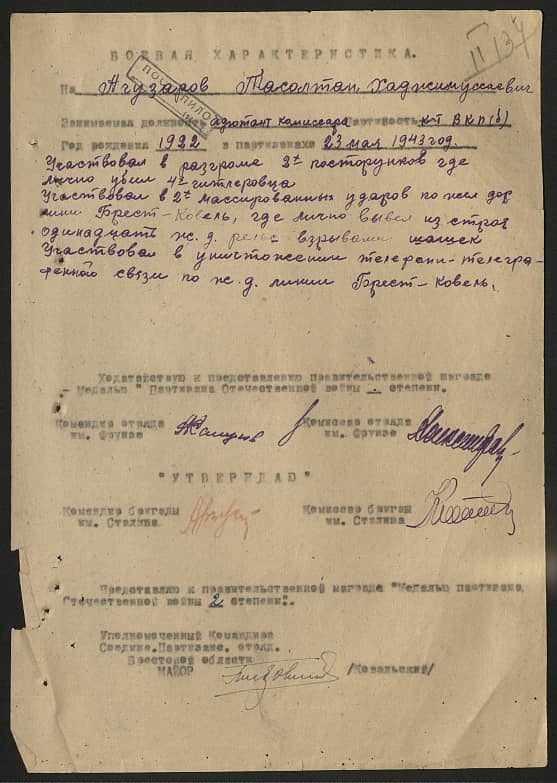 II 134
БОЕВАЯ ХАРАКТЕРИСТИКА.
На Агузаров Тасолтан Хаджимуссаевич
Занимаемая должность адютант комиссара партийность к-т ВКП(б)
Год рождения 1922 в партизанах 23 мая 1943 год.
Участвовал в разгроме 2х посторунков где
лично убил 4х гитлеровца
Участвовал в 2х массированных ударов по жел дор
линии Брест-Ковель, где лично вывел из строя
одинадцать ж.д. рельс взрывами шашек
Участвовал в уничтожении телефоно-телегра-
фенной связи по ж.д. линии Брест-Ковель.
Ходатайствую к представлению правительственной награде
- Медалью "Партизана Отечественной войны - степени.
Командир отряда Комиссар отряда
им. Фрунзе им. Фрунзе
"УТВЕРЖДАЮ"
Командир бригады Комиссар бригады
им. Сталина им. Сталина
Представляю к правительственной награде "Медалью партизана
Отечественной войны 2 степени".
Уполномоченный Командира
Соедине.Партизанс. отряд.
Брестской области
МАЙОР /Ковальский/